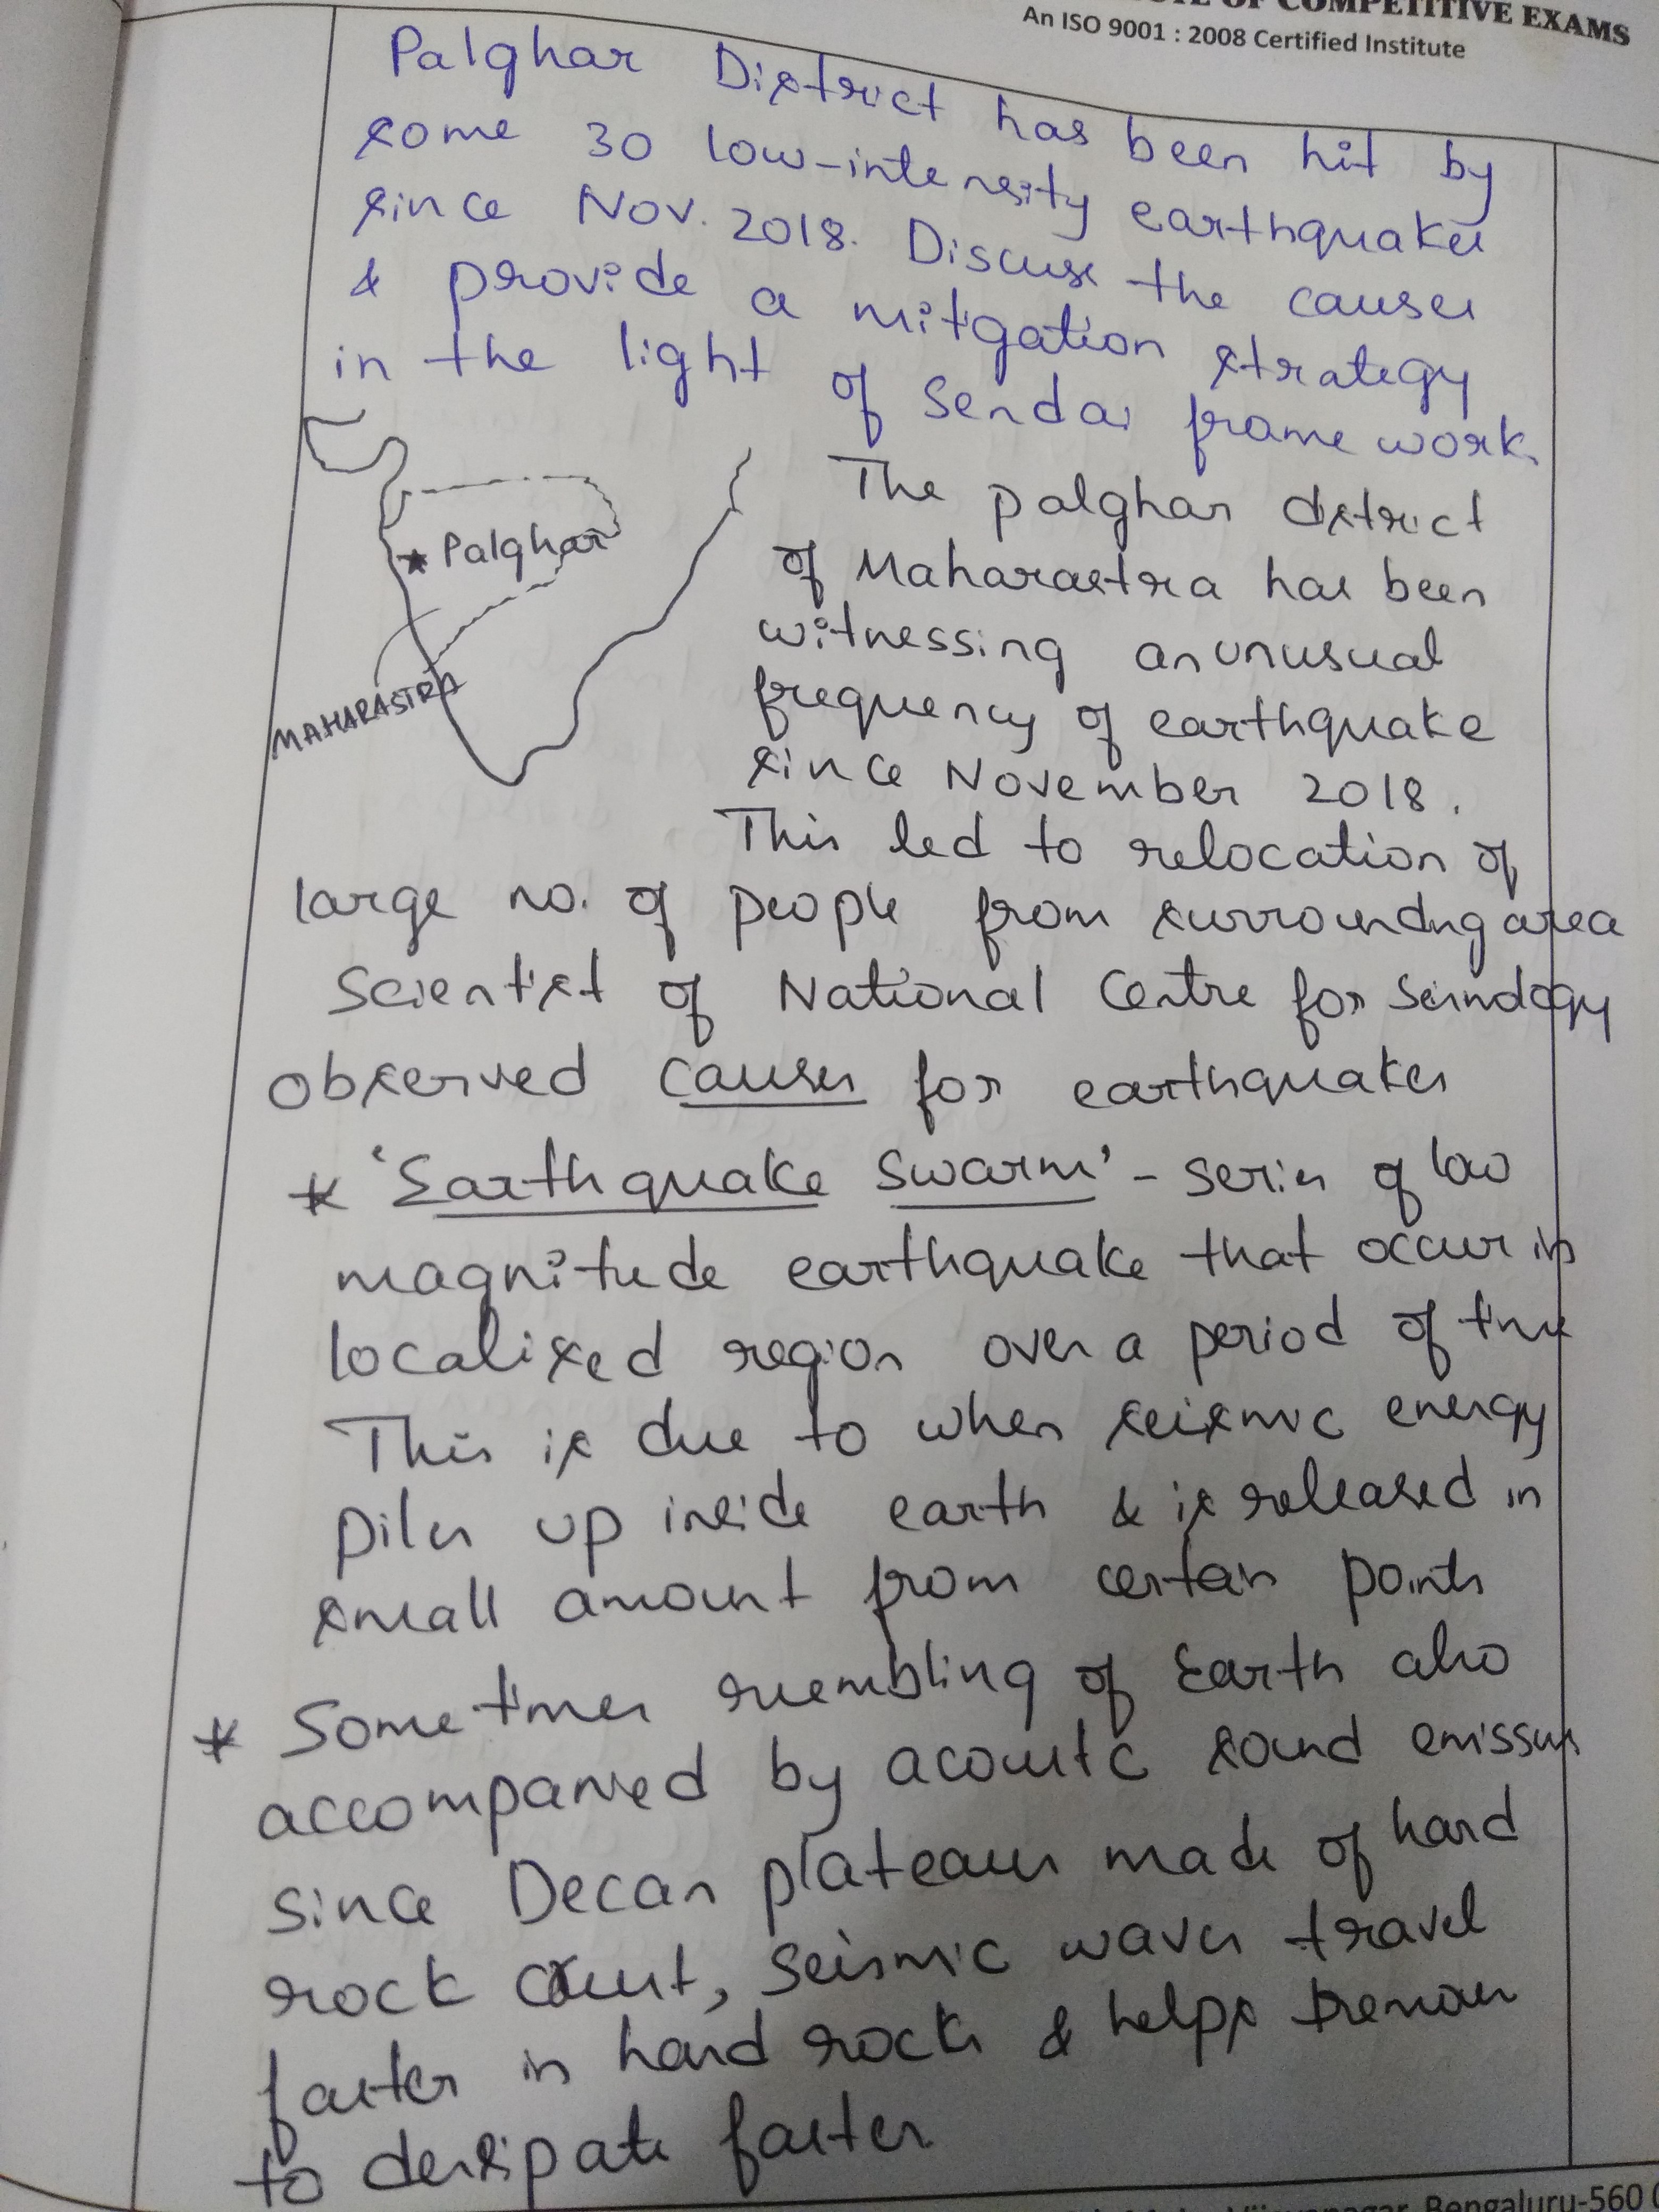 OF COMPETITIVE EXAMS
An ISO 9001 : 2008 Certified Institute
Palghar District has been hit by
some 30 low-intensity earthquakes
since Nov. 2018. Discuss the causes
& provide a mitigation strategy
in the light of Sendai frame work.
Palghar
MAHARASTRA
The palghar district
of Maharastra has been
witnessing an unusual
frequency of earthquake
since November 2018.
This led to relocation of
large no. of people from surroundng area
Scientist of National Centre for
observed causes for earthquakes
* 'Earthquake Swarm' - series of low
magnitude earthquake that occur in
localised region over a period of time
This is due to when seismic energy
piles up inside earth & is released in
small amount from certain points
* Sometimes ruembling of Earth also
accompanied by acoustc sound
since Decan plateaus made of hard
rock crust, seismic waves travel
faster in hard rocks & helps
to faster
Bengaluru-560